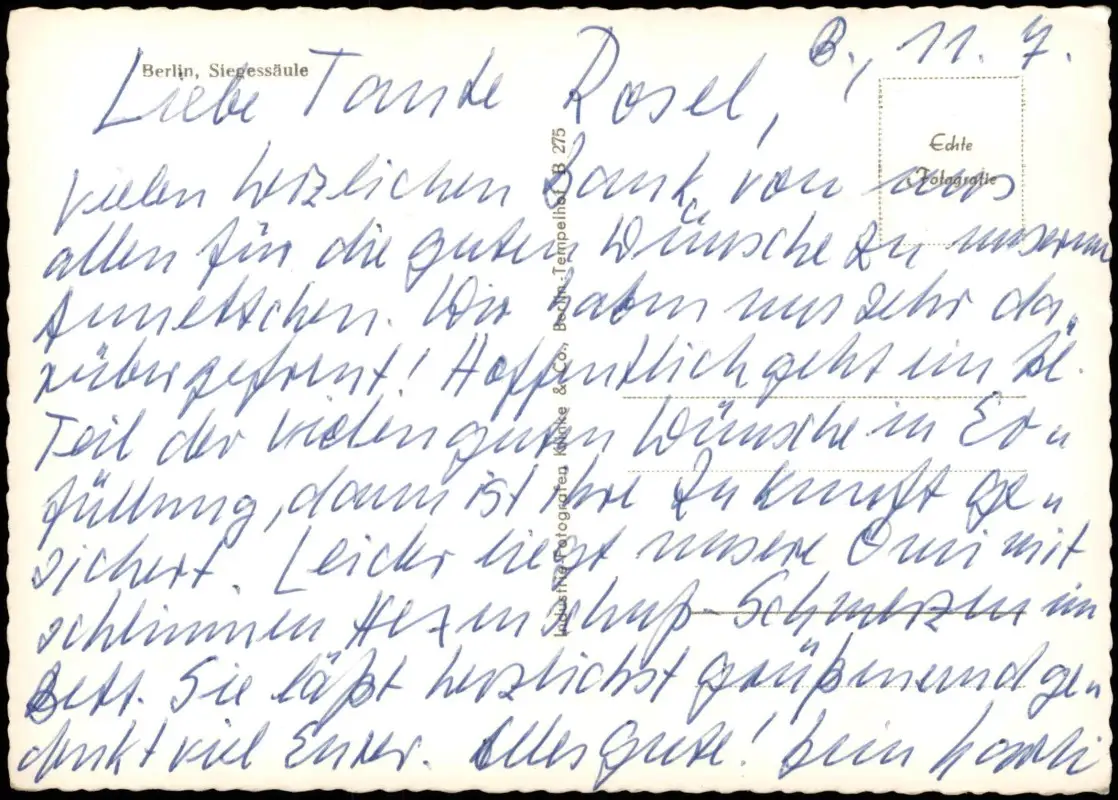 Berlin, Siegessäule
B., 11. 7.
Liebe Tante Rosel,
Echte
Fotografie
vielen herzlichen Dank von uns
allen für die guten Wünsche zu unserem
Annettchen. Wir haben uns sehr da„
rüber gefreut! Hoffentlich geht ein kl.
Teil der vielen guten Wünsche in Er„
füllung, dann ist ihre Zukunft ge„
sichert. Leider liegt unsere Omi mit
schlimmen Hexenschuß-Schmerzen im
Bett. Sie läßt herzlichst grüßen und ge„
denkt viel Eurer. Alles gute! Dein
Industrie-Fotografen Klinke & Co., Berlin-Tempelhof B 275